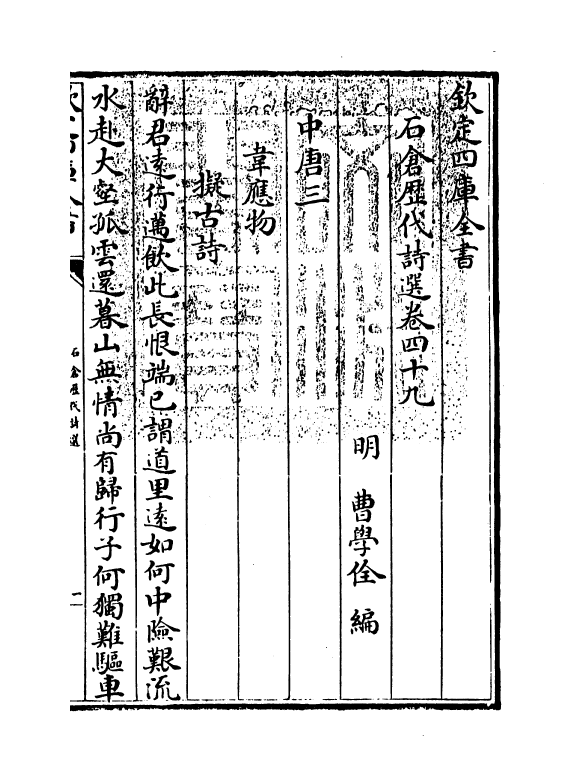 欽定四庫全書
石倉歷代詩選卷四十九
明 曹學佺 編
中唐三
韋應物
擬古詩
辭君遠行邁飲此長恨端已謂道里遠如何中險艱流
水赴大壑孤雲還暮山無情尚有歸行子何獨難驅車
石倉歷代詩選